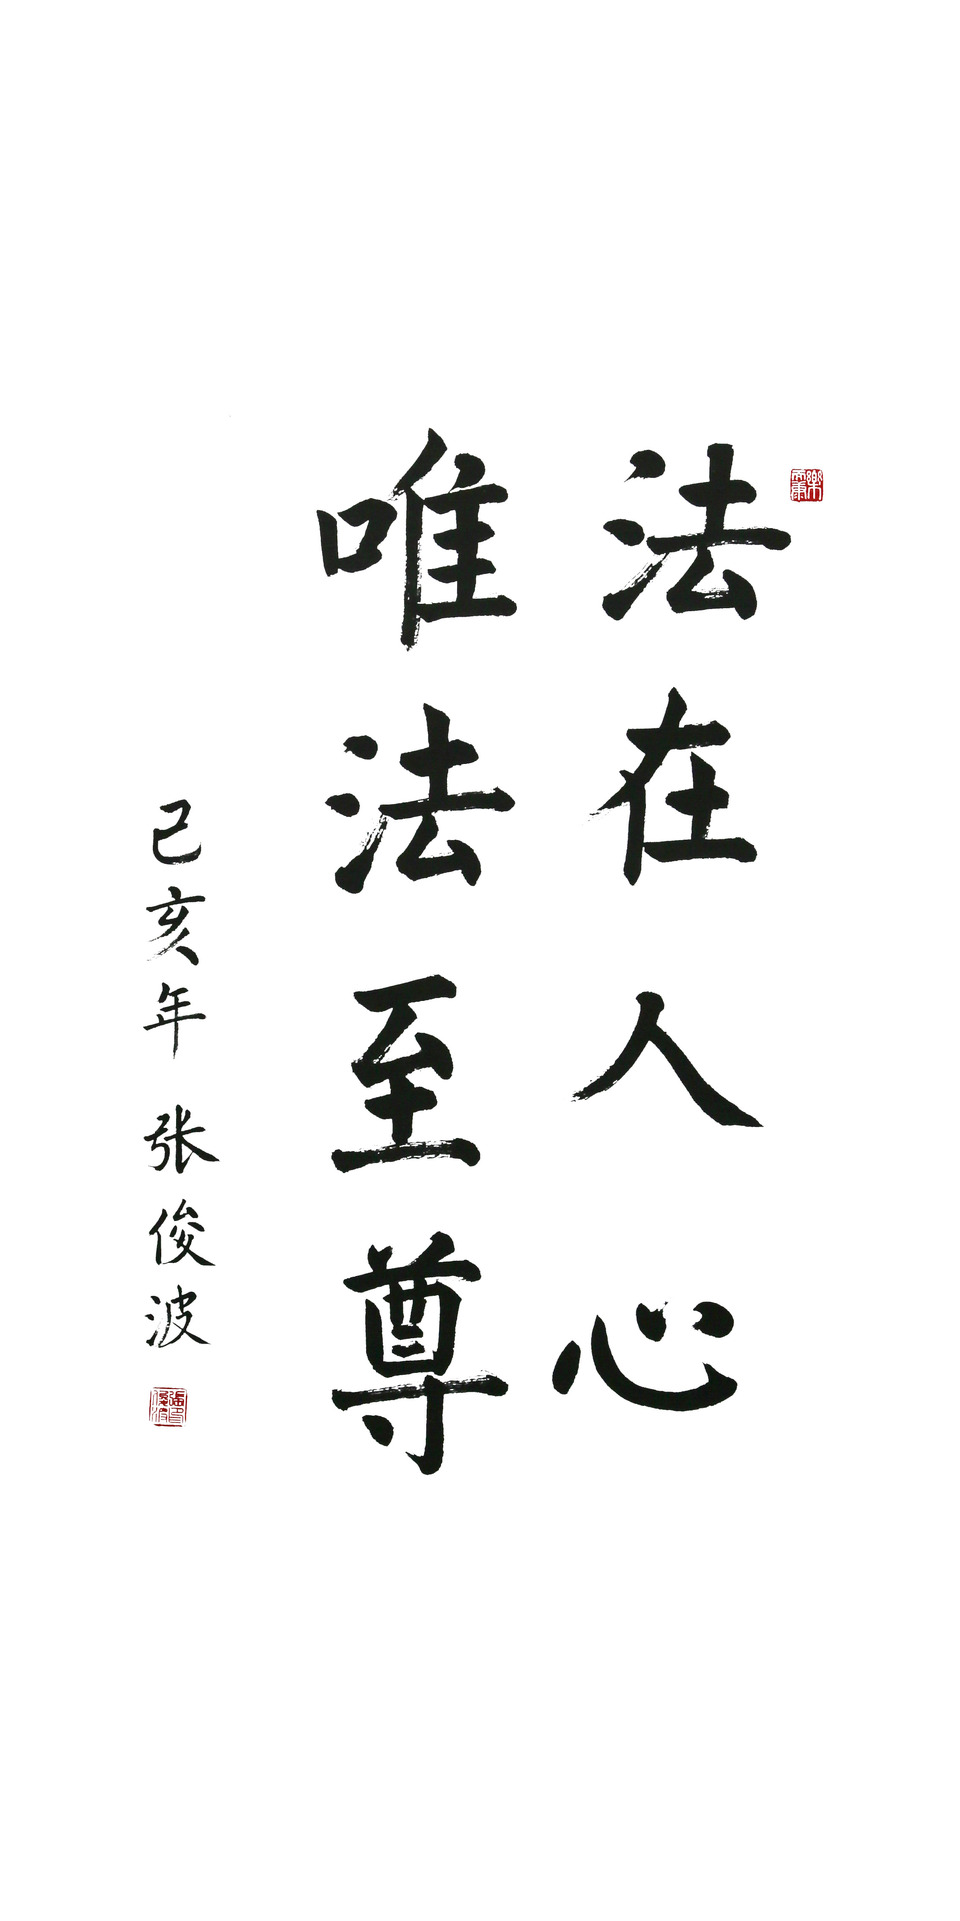 法在人心
唯法至尊
己亥年 张俊波